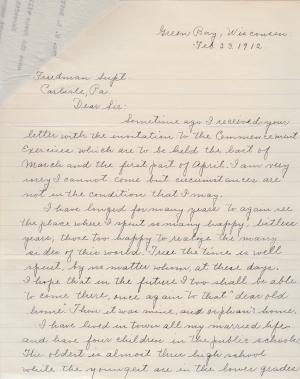 Green Bay, Wisconsin
Feb 23, 1912
Friedman Supt
Carlisle, Pa.
Dear Sir:
Sometime ago I received your
letter with the invitation to the Commencement
Exercises which are to be held the last of
March and the first part of April. I am very
sorry I cannot come but circumstances are
not in the condition that I may.
I have longed for many years to again see
the place where I spent so many happy,
years, those too happy to realize the many
sides of this world. I see the time is well
spent, by no matter whom, at these days.
I hope that in the future I too shall be able
to come there, once again to that "dear old
home". Then it was mine, and orphan's home.
I have lived in town all my married life
and have four children in the public schools.
The oldest is almost thru high school
while the youngest are in the lower grades